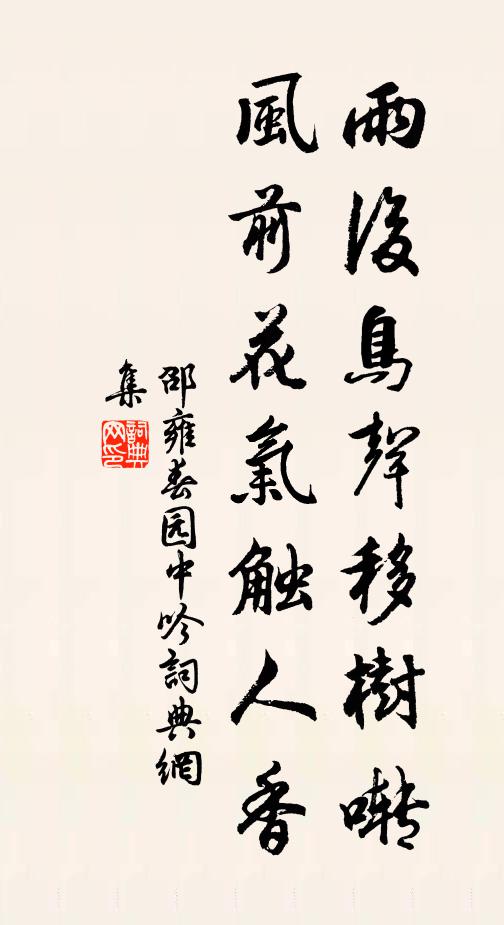 雨後鳥聲移樹囀
風前花氣触人香
邵雍春园中吟詞典網
集
詞典网印